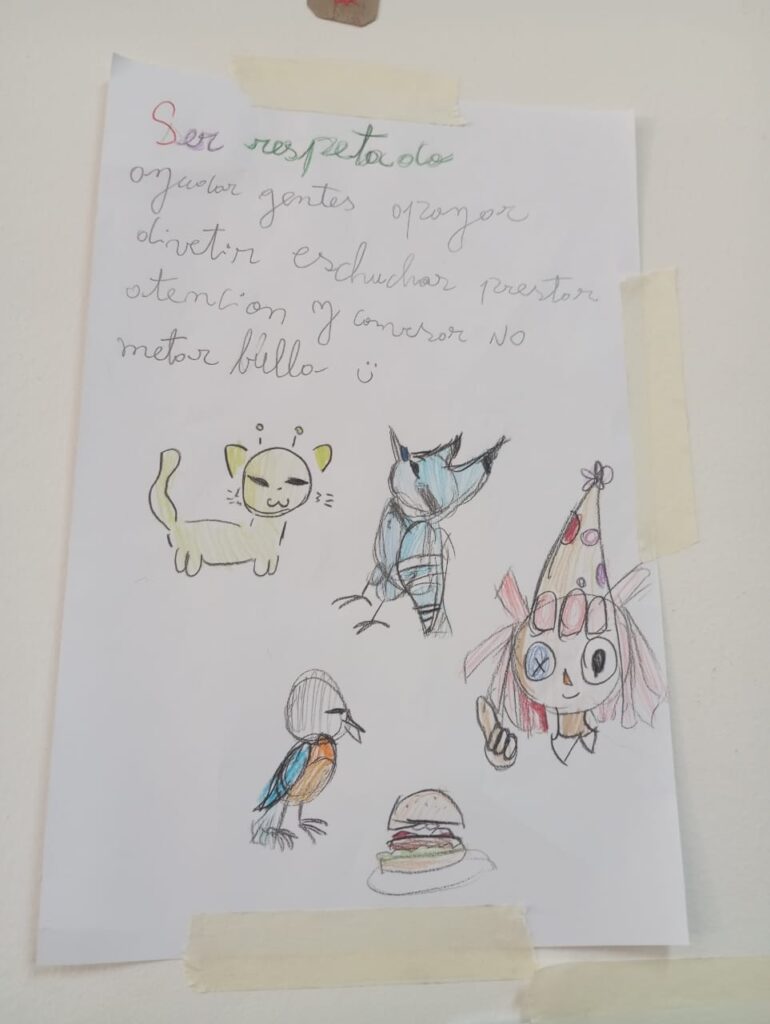 Ser respetado
ayudar gentes apoyar
divetir eschuchar prestar
atencion y conversar NO
metar bulla